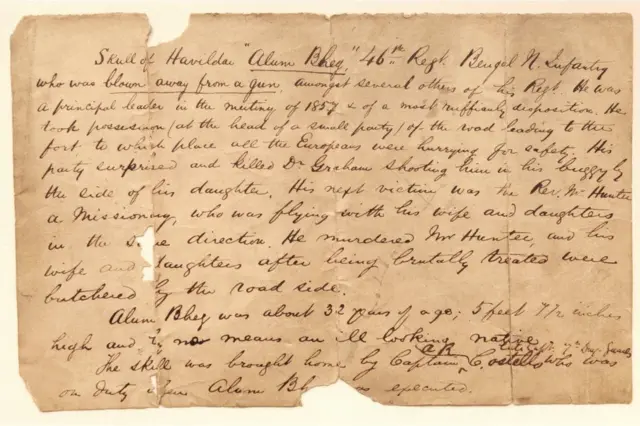 Skull of Havildar "Alum Bheg," 46th Regt. Bengal N. Infantry
who was blown away from a gun, amongst several others of his Regt. He was
a principal leader in the mutiny of 1857 & of a most ruffianly disposition. He
took possession (at the head of a small party) of the road leading to the
fort to which place all the Europeans were hurrying for safety. His
party surprised and killed Dr. Graham shooting him in his buggy by
the side of his daughter. His next victim was the Rev. Mr. Hunter
a Missionary, who was flying with his wife and daughters
in the same direction. He murdered Mr Hunter, and his
wife and daughters after being brutally treated were
butchered by the road side.
Alum Bheg was about 32 years of age; 5 feet 7 1/2 inches
high and by no means an ill looking native.
The skull was brought home by Captain A.R. Costello who was
7th Drag. Guards
on duty when Alum Bh as executed.